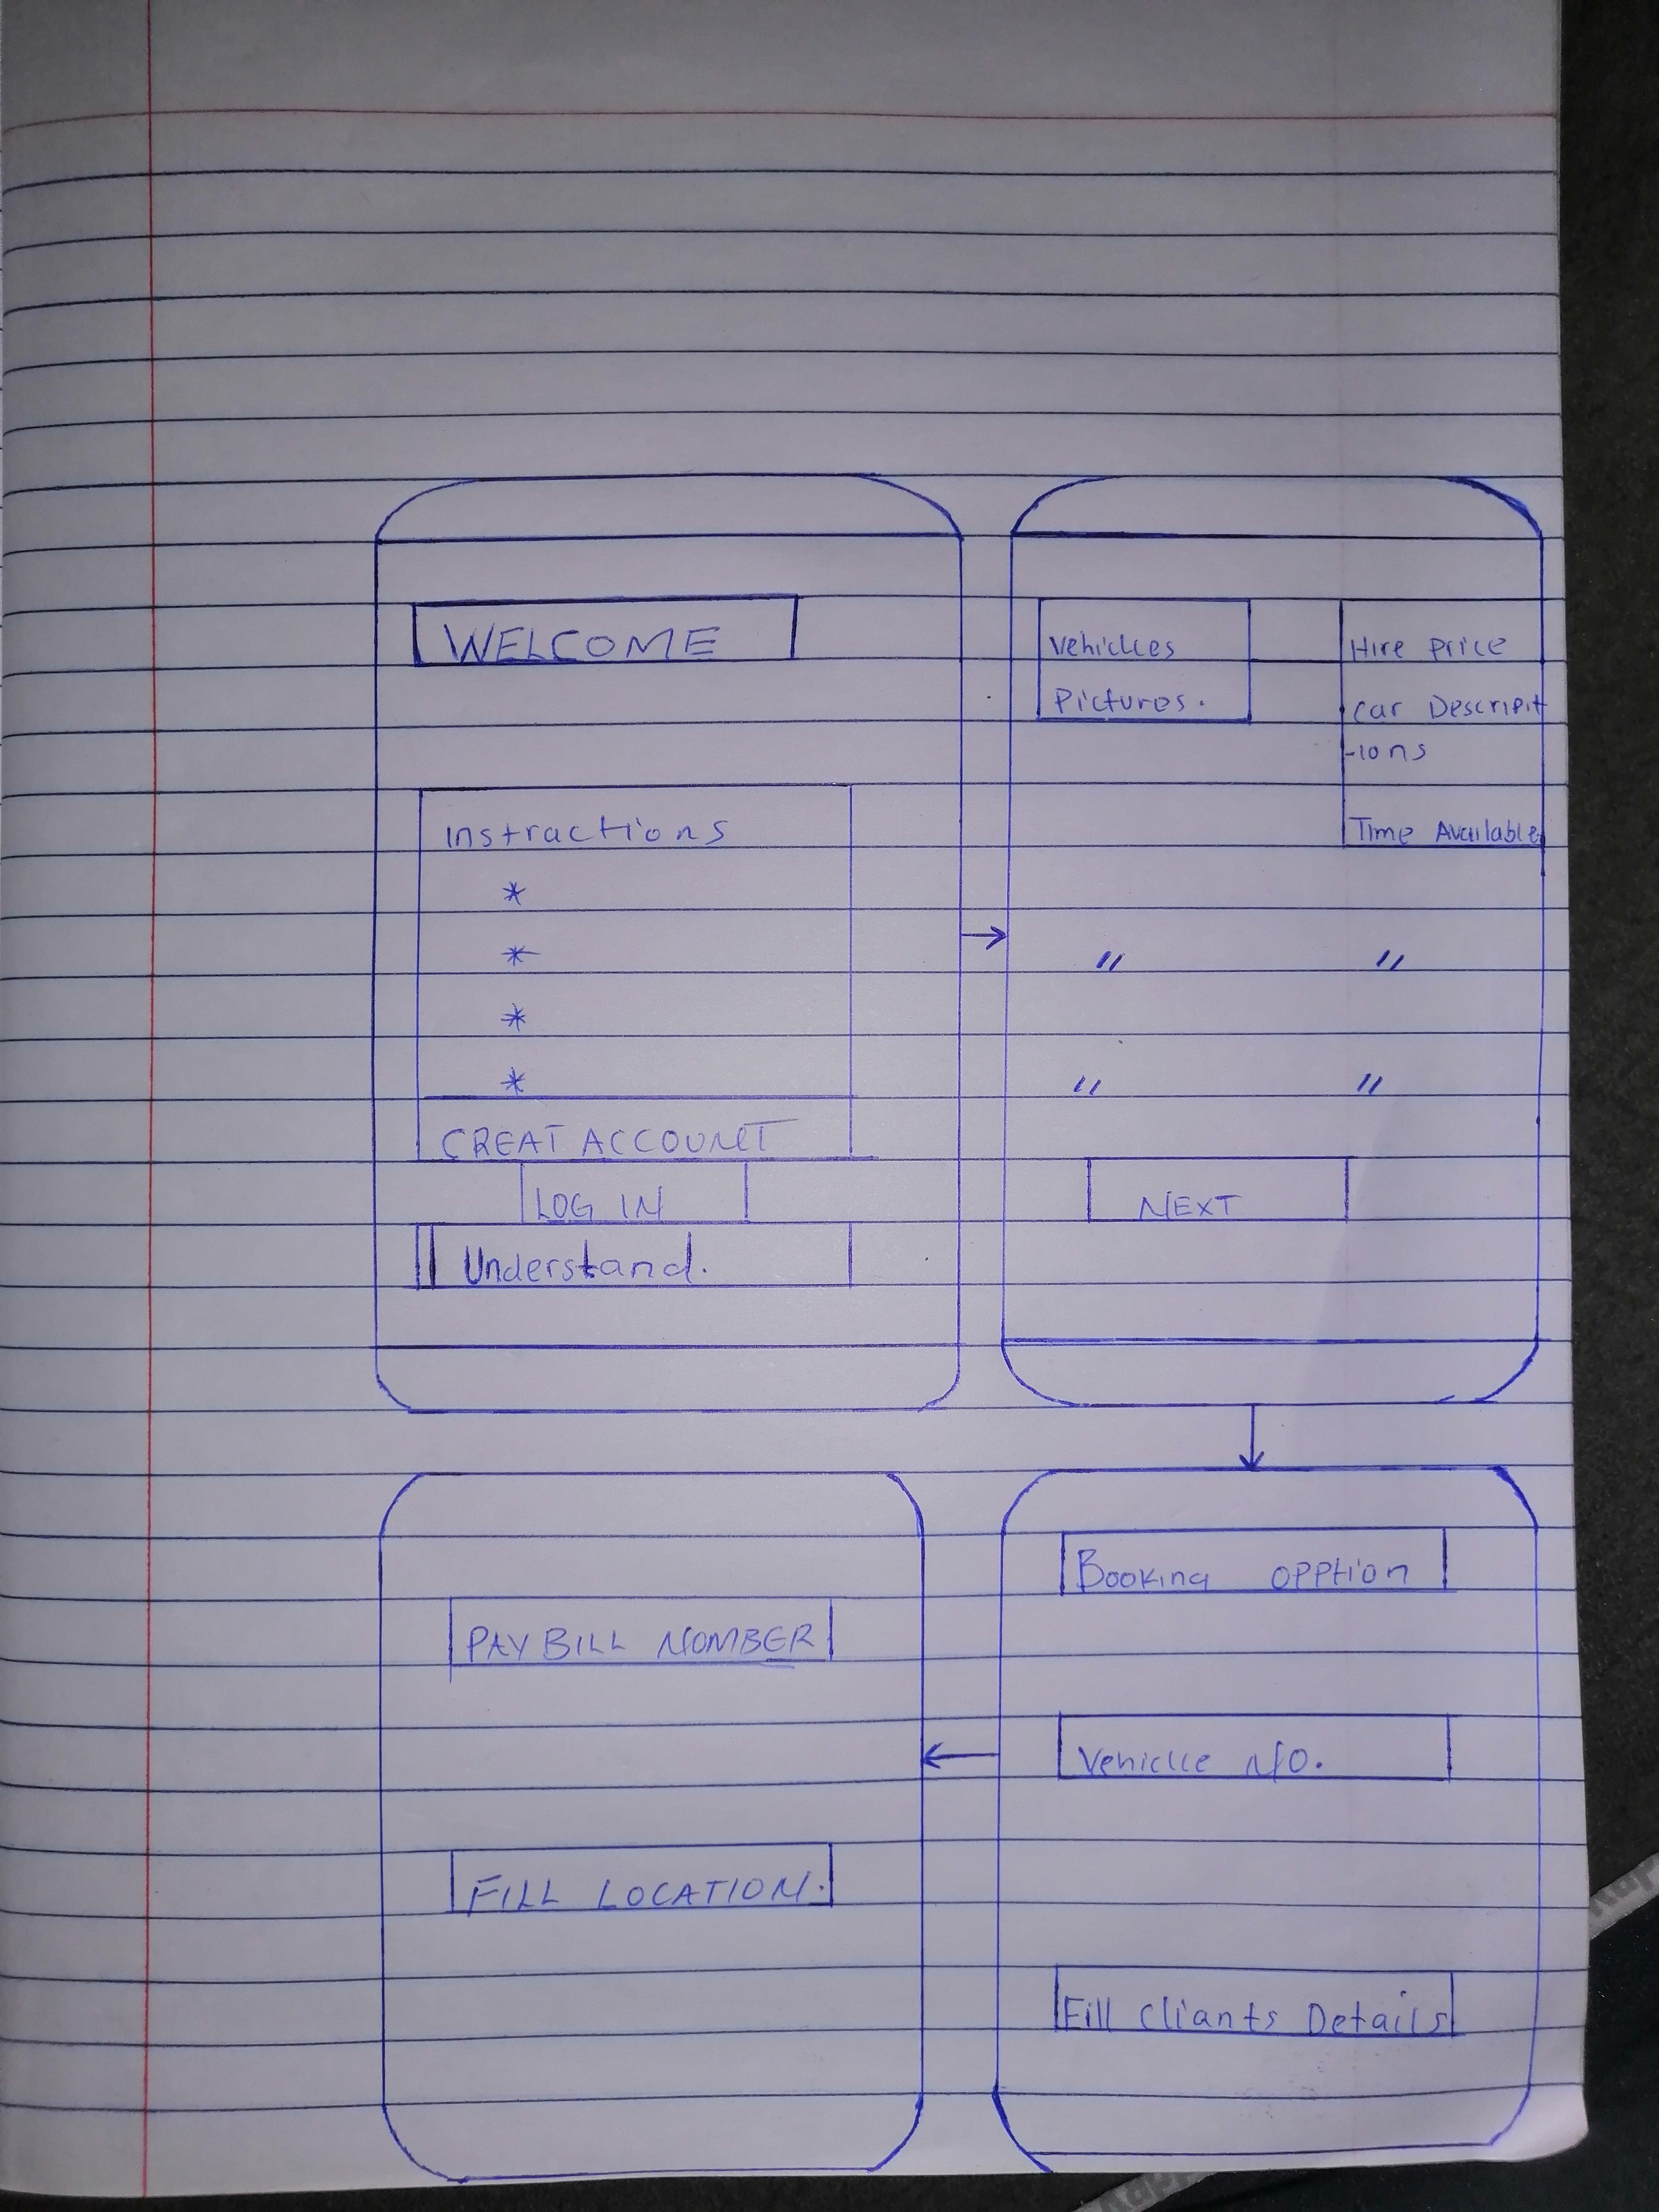 WELCOME
Instractions
*
*
*
*
CREAT ACCOUNT
LOG IN
Understand.
Vehiclles
Pictures.
Hire Price
Car Descripit
-ions
Time Available
〃 〃
〃 〃
NEXT
Booking oPPtion
Vehiclle NO.
Fill Cliants Details
PAY BILL NOMBER
FILL LOCATION.